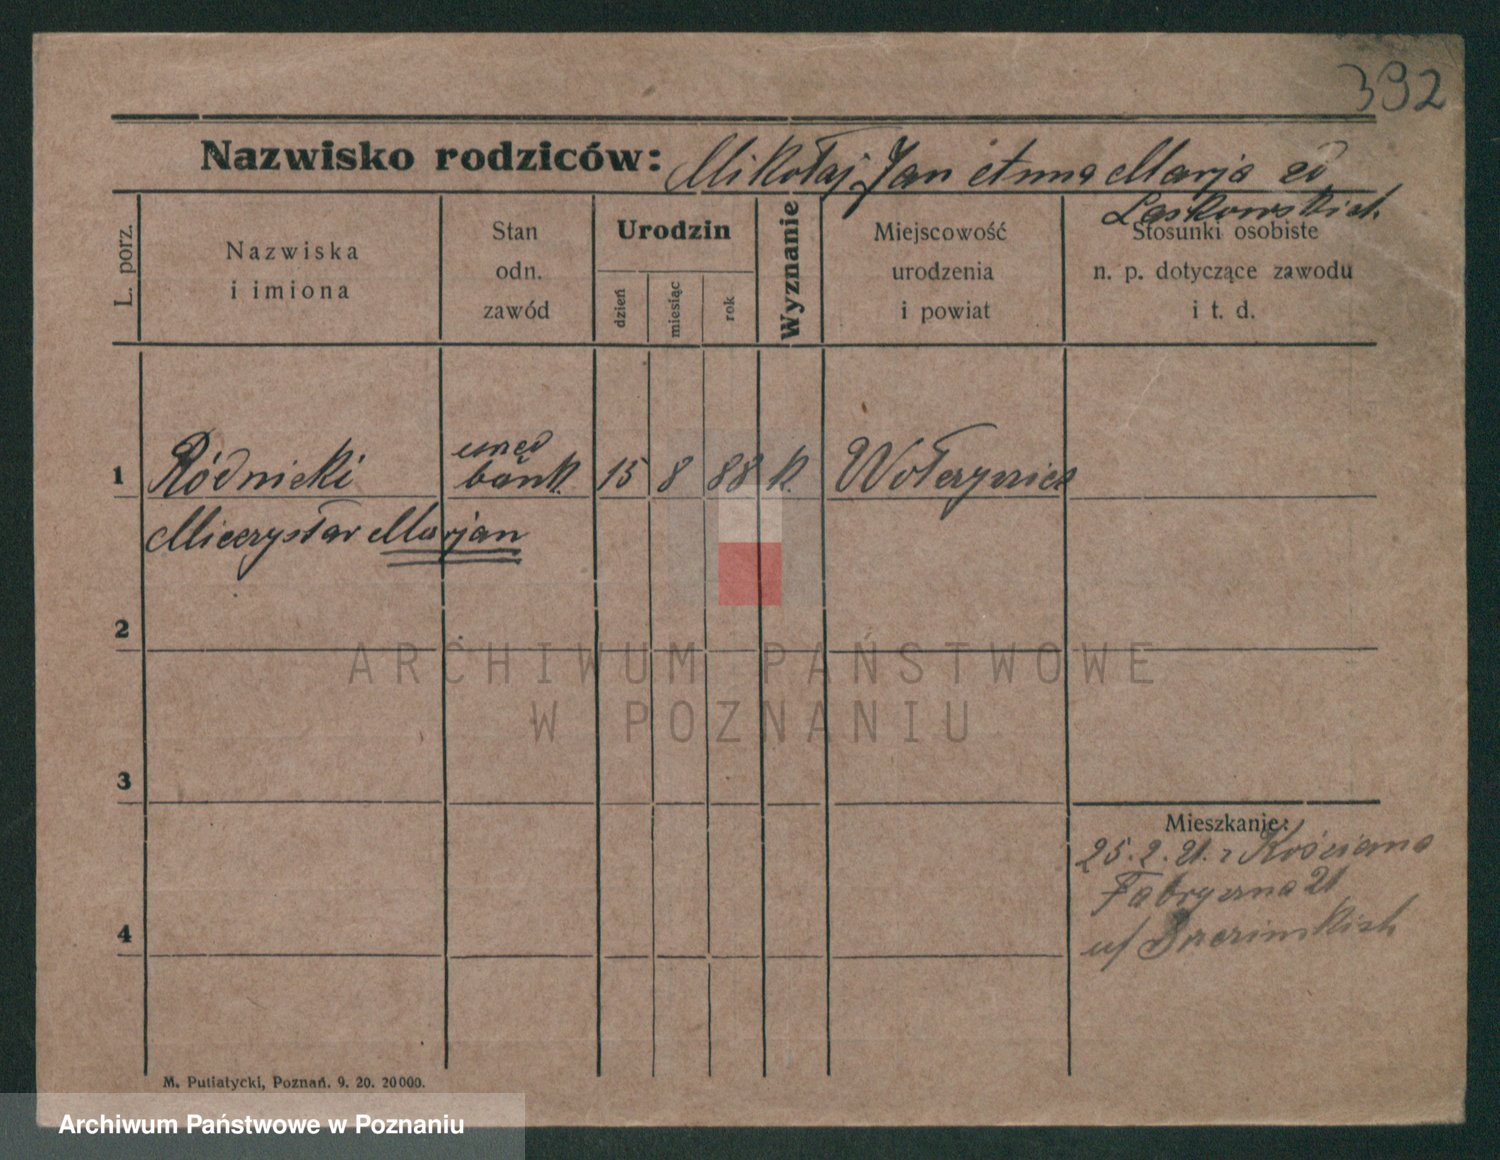 392
Nazwisko rodziców: Mikołaj Jan Anna Marja zd
Laskowskich
L. porz.
Nazwiska
i imiona
Stan
odn.
zawód
Urodzin
dzień
miesiąc
rok
Wyznanie
Miejscowość
urodzenia
i powiat
Stosunki osobiste
n. p. dotyczące zawodu
i t. d.
1 Ródnicki urzęd bank. 15 8 88 k.
Mieczysław Marjan
2
ARCHIWUM PAŃSTWOWE
W POZNANIU
3
Mieszkanie:
25. 2. 21. z Kościana
Fabryczna 21
4
u/
M. Putiatycki, Poznań. 9. 20. 20000.
Archiwum Państwowe w Poznaniu